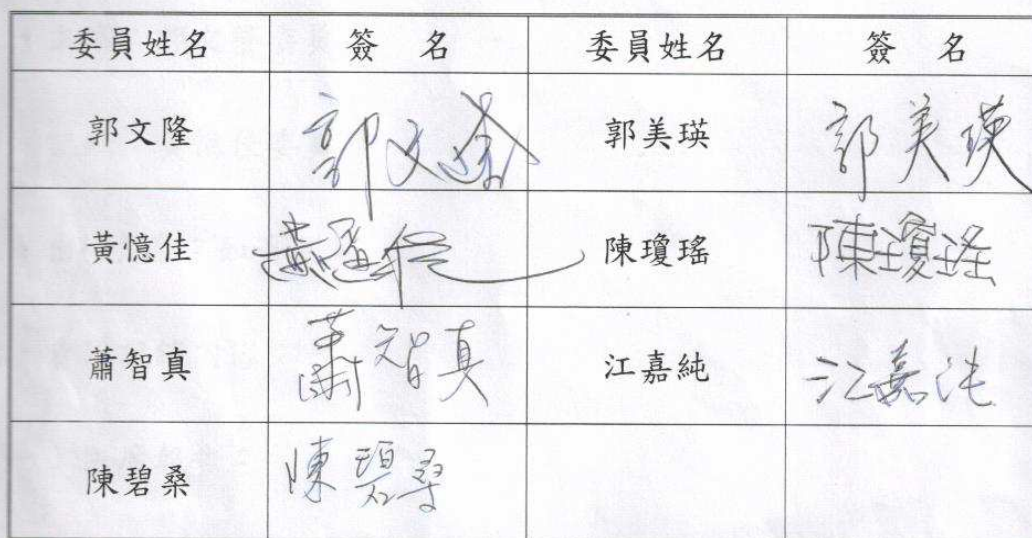 委員姓名 簽 名 委員姓名 簽 名
郭文隆 郭文隆 郭美瑛 郭美瑛
黃憶佳 黃憶佳 陳瓊瑤 陳瓊瑤
蕭智真 蕭智真 江嘉純 江嘉純
陳碧桑 陳碧桑